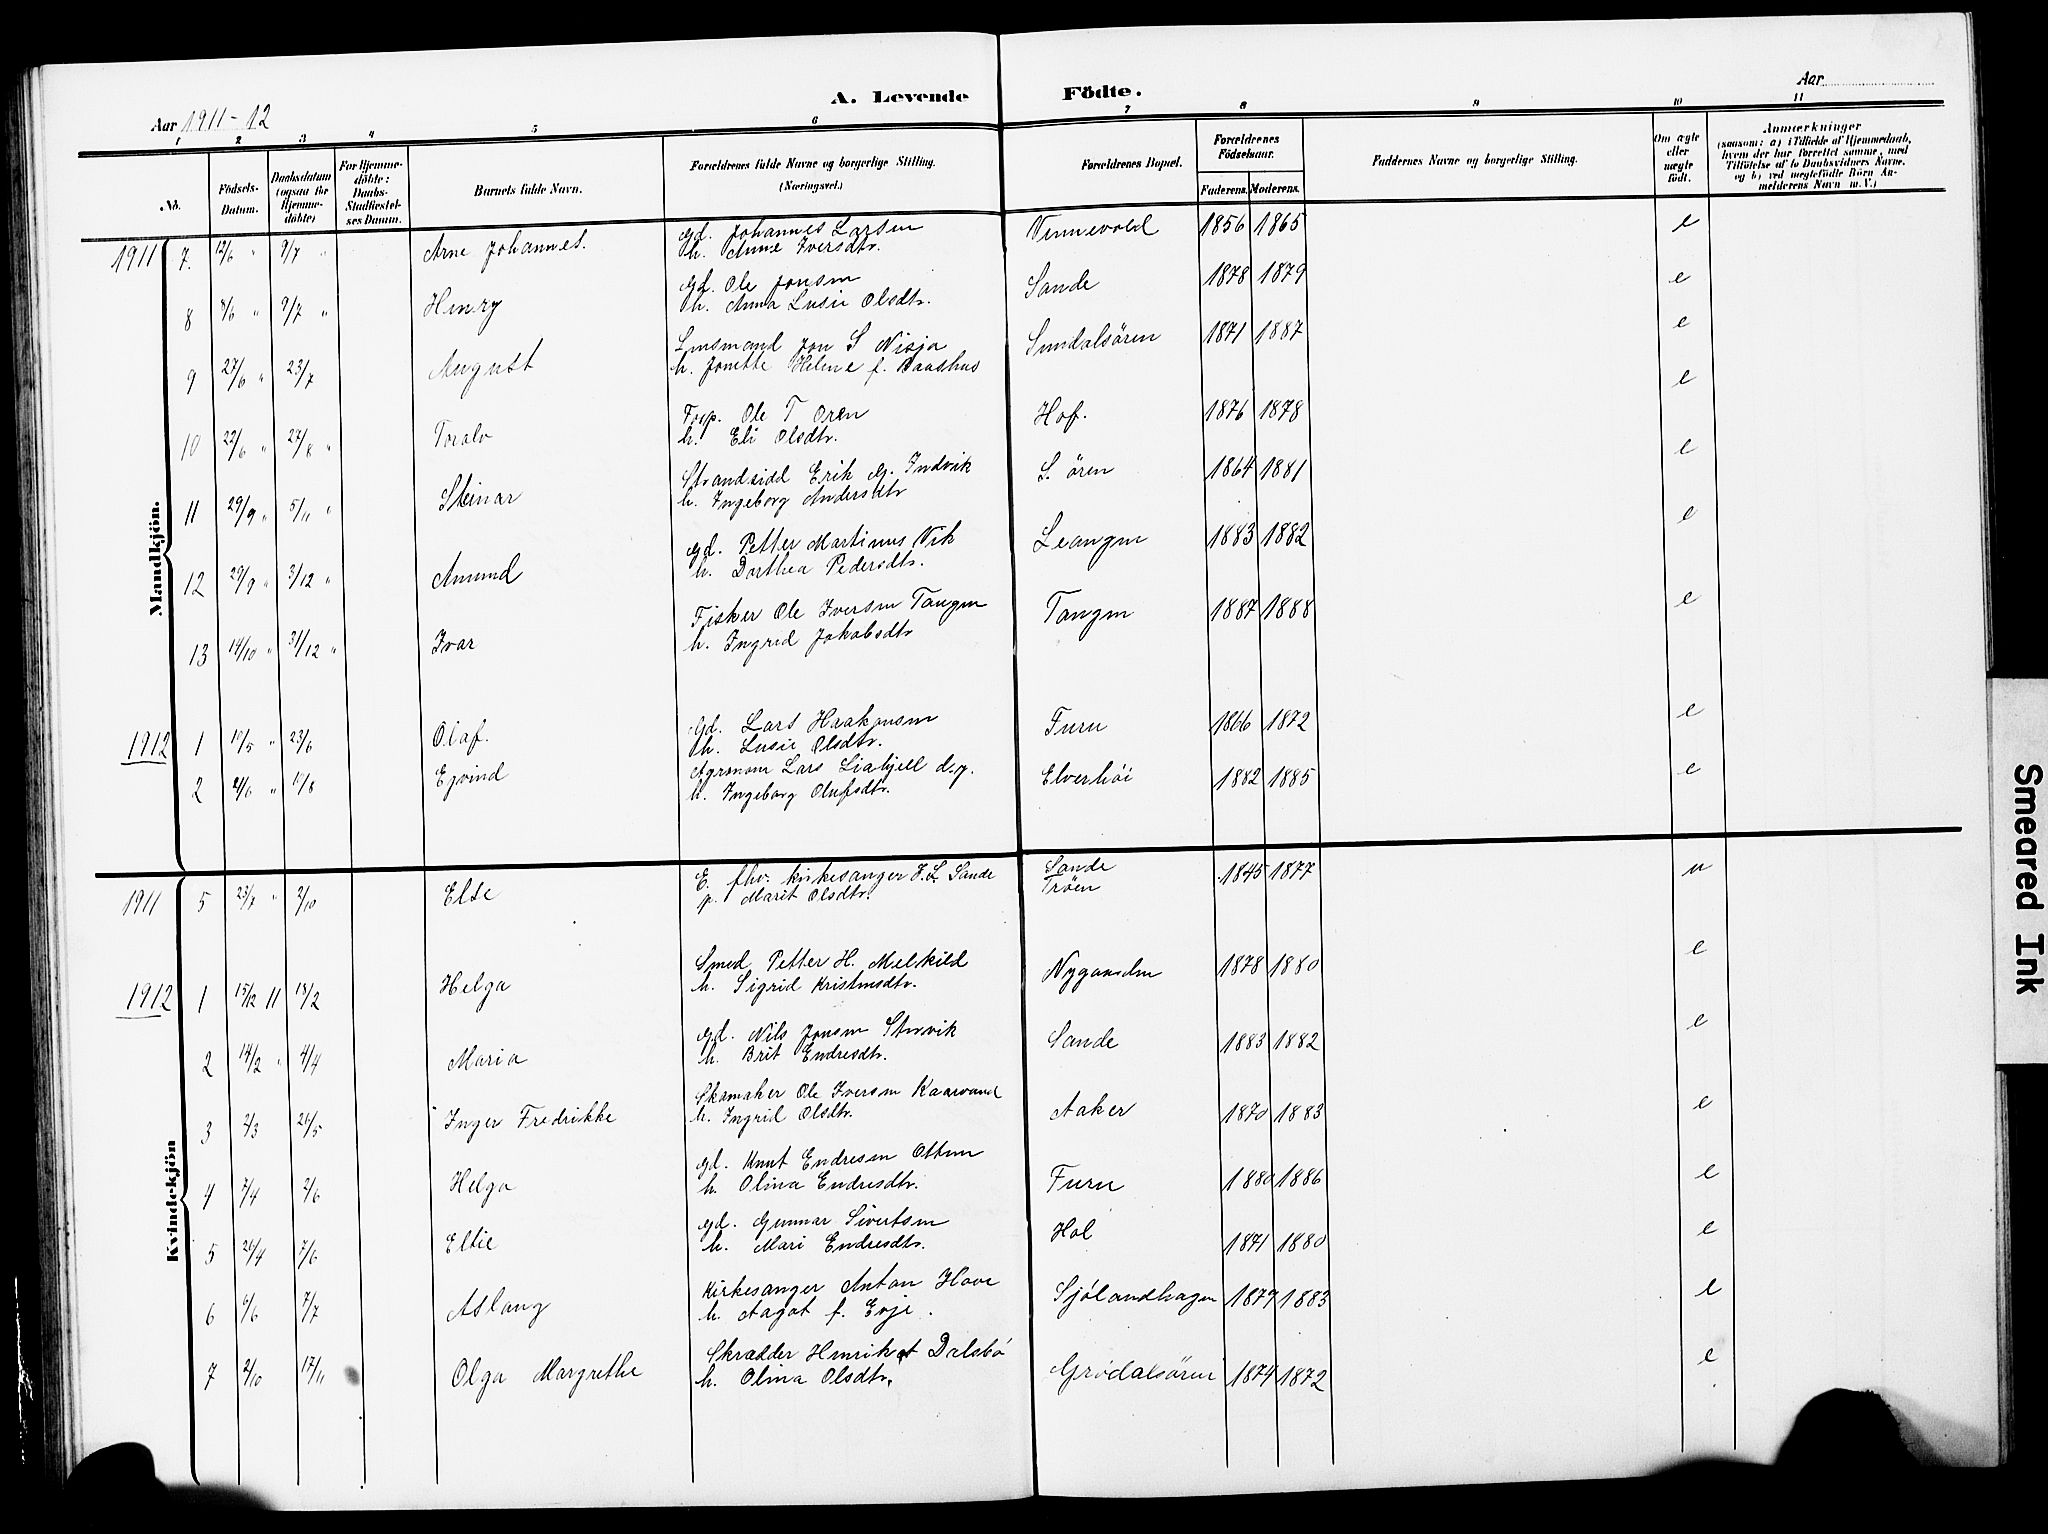 Aar 1911-12
A. Levende Födte.
Aar
1 2 3 4 5 6 7 8 9 10 11
No. Födsels-Datum. Daabsdatum (ogsaa for Hjemmedöbte) For Hjemmedöbte: Daabs-Stadfæstelses Datum. Barnets fulde Navn. Forældrenes fulde Navne og borgerlige Stilling. (Næringsvei.) Forældrenes Bopæl. Forældrenes Födselsaar. Faderens. Moderens. Faddernes Navne og borgerlige Stilling. Om ægte eller uægte födt. Anmærkninger (saasom: a) i Tilfælde af Hjemmedaab, hvem der har forrettet samme, med Tilföielse af to Daabsvidners Navne, og b) ved uægtefödte Börn Anmelderens Navn m. V.)
Mandkjön.
1911 7. 12/6 " 9/7 " Arne Johannes. Gd. Johannes Larsen Vennevold 1856 1865 e
h. Anne Iversdtr.
8 8/6 " 9/7 " Henry Gd. Ole Jonsen Sande 1878 1879 e
h. Anna Lusie Olsdtr.
9 27/6 " 23/7 August Lensmand Jon S Nisja Sundalsören 1871 1887 e
h. Jonette Helene f. Baashus
10 22/6 " 27/8 " Toralv Forp. Ole T Oren Hof. 1876 1878 e
h. Eli Olsdtr.
11 29/9 " 5/11 " Steinar Strandsidd Erik G. Indvik S. ören 1864 1881 e
h. Ingeborg Andersdtr
12 29/9 " 3/12 " Amund Gd. Petter Martinus Vik Leangen 1883 1882 e
h. Dorthea Pedersdtr.
13 14/10 " 31/12 " Ivar Fisker Ole Iversen Tangen Tangen 1887 1888 e
h. Ingrid Jakobsdtr
1912 1 10/5 " 23/6 Olaf. Gd. Lars Haakonsen Furu 1866 1872 e
h. Lusie Olsdtr.
2 21/6 " 19/8 Ejvind Agronom Lars Liahjell d.y. Elverhöi 1882 1885 e
h. Ingeborg Olufsdtr.
Kvindekjön
1911 5 23/7 " 2/10 Else E. fhv. kirkesanger J. L. Sande Sande 1845 1877 u
p. Marit Olsdtr. Tröen
1912 1 15/12 11 18/2 Helga Smed Petter H. Melkild Nygaarden 1878 1880 e
h. Sigrid Kristensdtr.
2 14/2 " 4/4 Maria Gd. Nils Jonsen Storvik Sande 1883 1882 e
h. Brit Endresdtr.
3 2/3 26/5 Inger Fredrikke Skomaker Ole Iversen Kaarvand Aaker 1870 1883 e
h. Ingrid Olsdtr.
4 7/4 2/6 Helga Gd. Knut Endresen Ottem Furu 1880 1886 e
h. Olina Endresdtr.
5 26/4 7/6 Elsie Gd. Gunnar Sivertsen Hol 1871 1880 e
h. Mari Endresdtr.
6 6/6 7/7 Aslaug Kirkesanger Anton Hove Sjölandhagen 1879 1883 e
h. Aagot f. Evje.
7 2/10 17/11 Olga Margrethe Skrædder Henrik A Dalsbö Grödalsören 1874 1872 e
h. Olina Olsdtr.
Smeared Ink